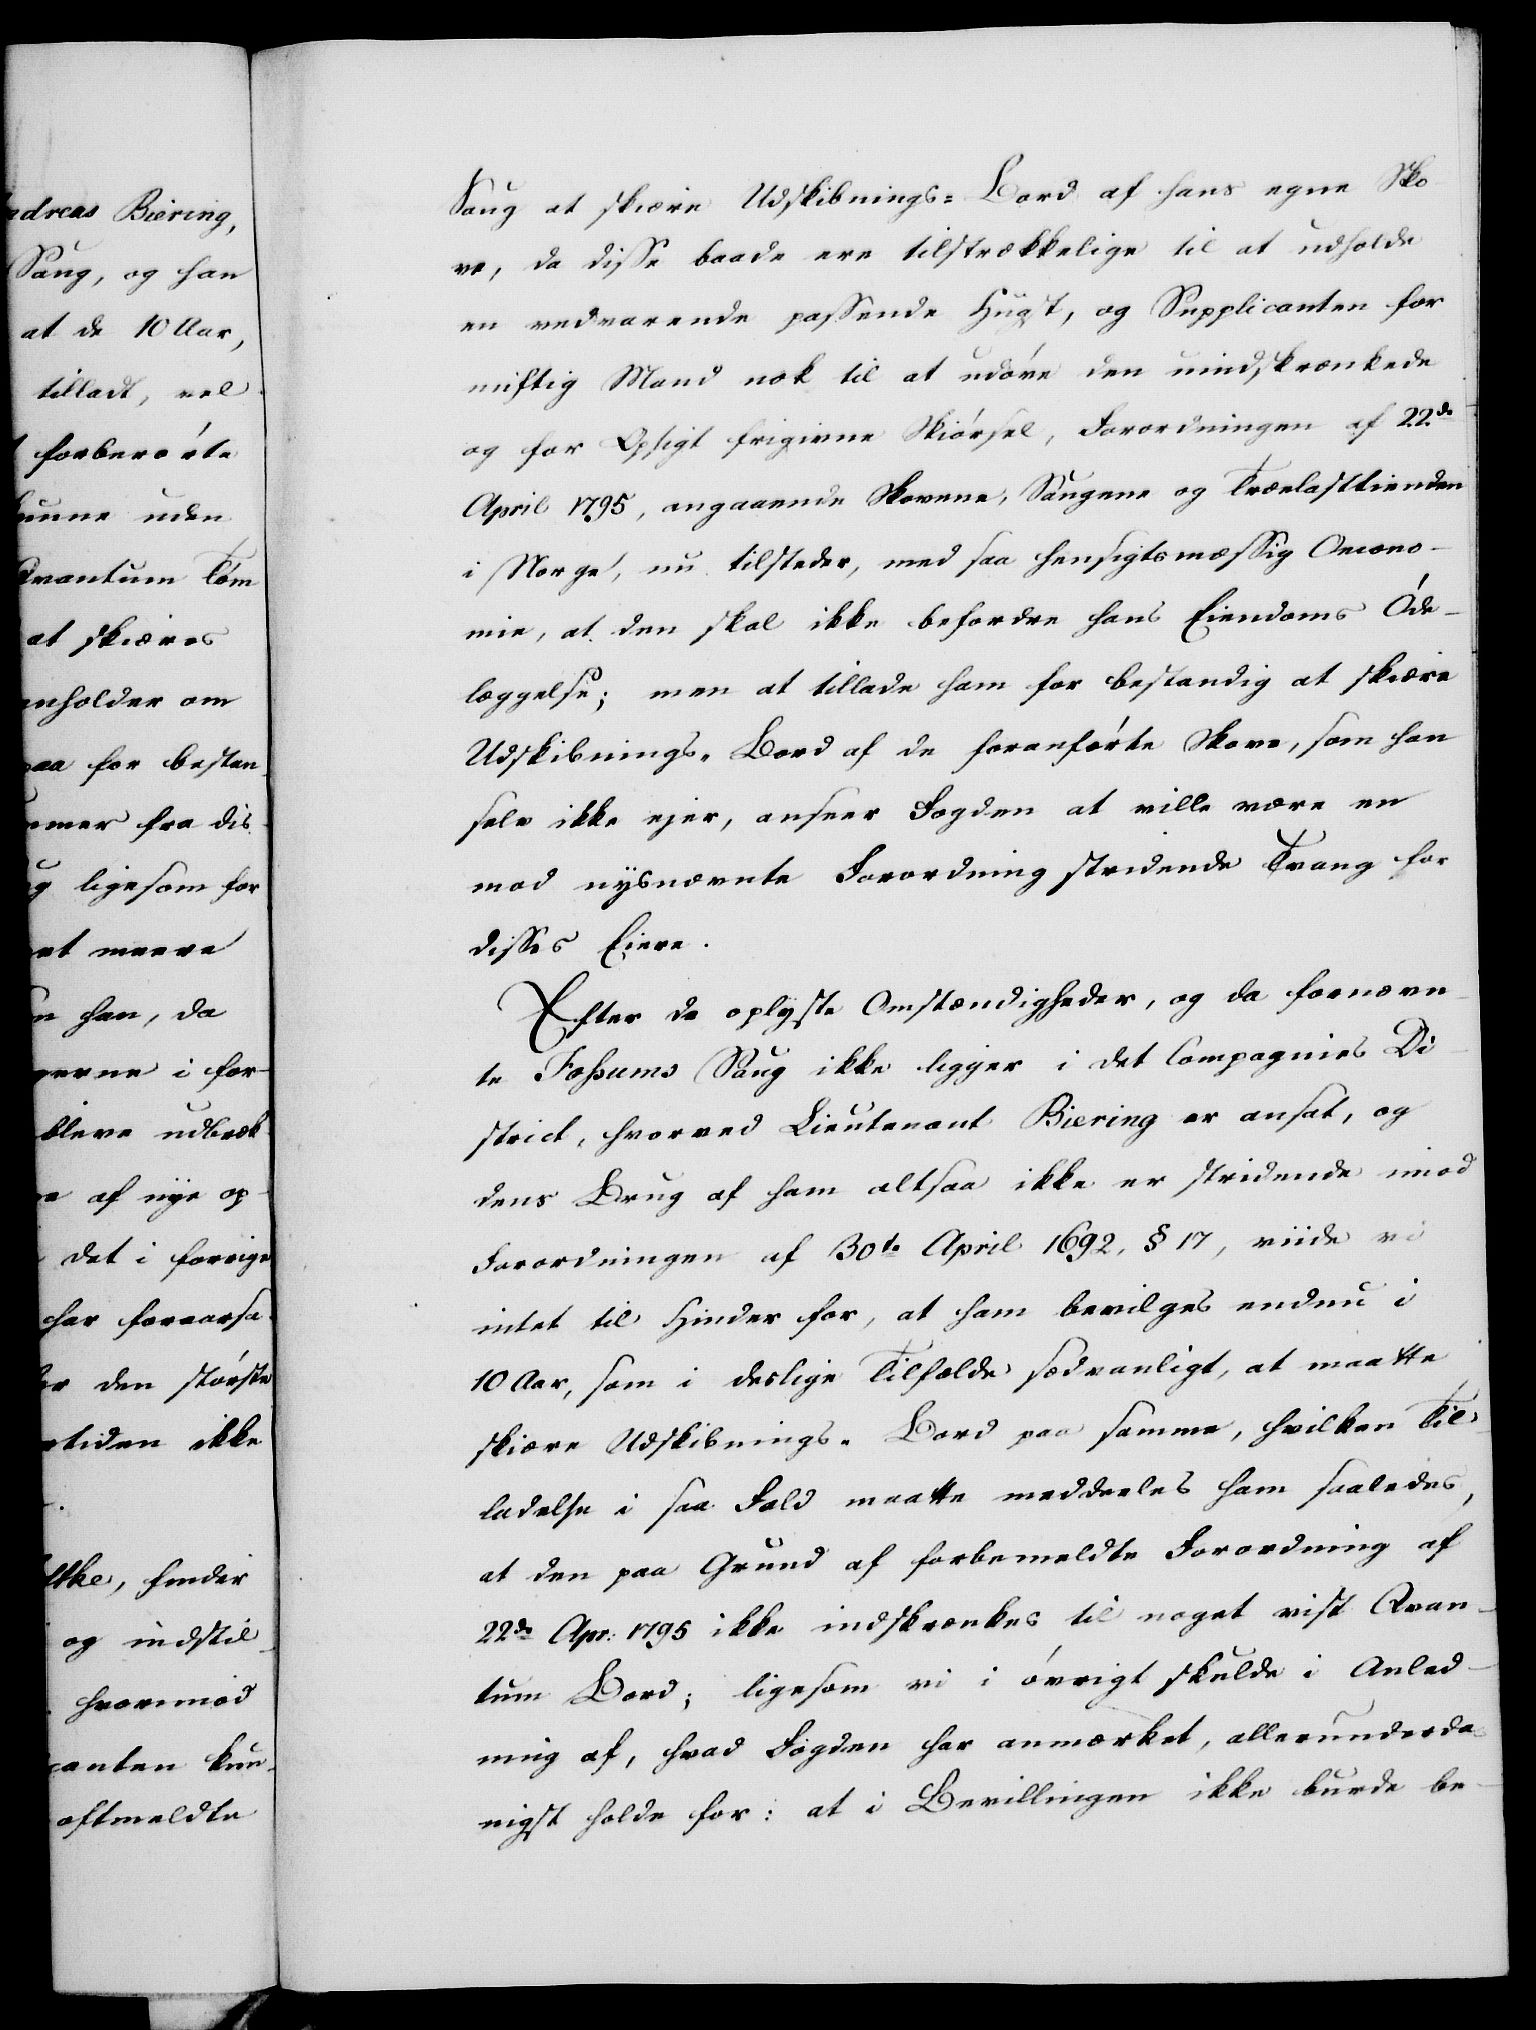 ndreas Biering,
Saug, og han
at de 10 Aar,
tilladt, vel
forberørte
kunne uden
Qvantum Tøm
at skiæres
anholder om
paa for bestan-
mmer fra dis-
og ligesom for
et meere
han, da
gerne i for-
bleve udbræk
af nye op-
det i forrige
har foraarsa-
er den største
tiden ikke
tke, finder
og indstil-
hvorimod
canten kun-
oftmeldte
Saug at skiære Udskibnings= Bord af hans egne Sko
ve, da disse baade ere tilstrækkelige til at udholde
en vedvarende passende Hugst, og Supplicanten for
nuftig Mand nok til at udøve den uindskrænkede
og for Opsigt frigivne Skiørsel, Forordningen af 22de
April 1795, angaaende Skovene, Saugene og Trælasttienden
i Norge, nu tilsteder, med saa hensigtsmæssig Oecono-
mie, at den skal ikke befordre hans Eiendoms Øde-
læggelse; men at tillade ham for bestandig at skiære
Udskibnings= Bord af de foranførte Skove, som han
selv ikke ejer, anseer Fogden at ville være en
mod nysnævnte Forordning stridende Tvang for
disses Eiere.
Efter de oplyste Omstændigheder, og da fornævn
te Fossums Saug ikke ligger i det Compagnies Di
strict, hvorved Lieutenant Biering er ansat, og
dens Brug af ham altsaa ikke er stridende imod
Forordningen af 30te April 1692, § 17, viide vi
intet til Hinder for, at ham bevilges endnu i
10 Aar, som i deslige Tilfælde sædvanligt, at maatte
skiære Udskibnings= Bord paa samme, hvilken Til-
ladelse i saa Fald maatte meddeeles ham saaledes,
at den paa Grund af forbemeldte Forordning af
22de Apr: 1795 ikke indskrænkes til noget vist Qvan-
tum Bord; ligesom vi i øvrigt skulde i Anled-
ning af, hvad Fogden har anmærket, allerunderda
nigst holde for: at i Bevillingen ikke burde be-